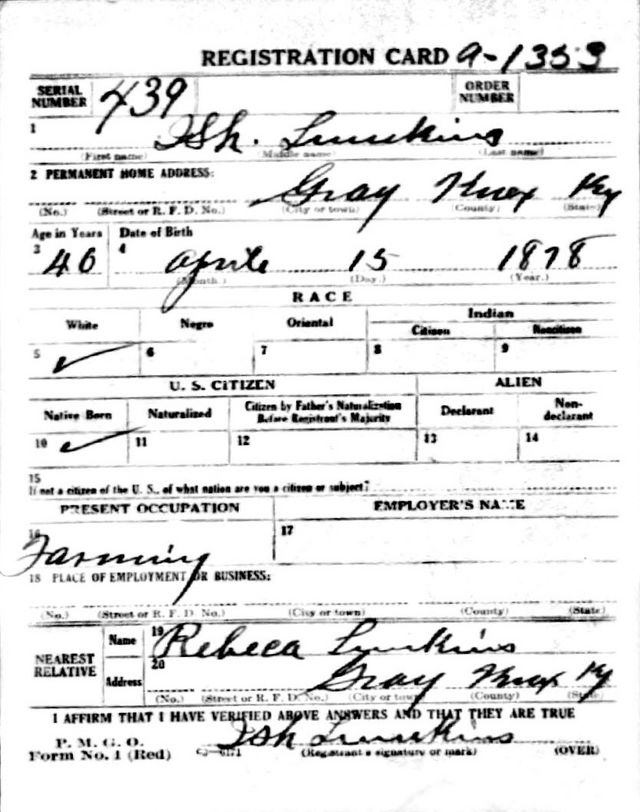 REGISTRATION CARD 9-1353
SERIAL NUMBER 439 ORDER NUMBER
1 Ish. Lunkins
(First name) (Middle name) (Last name)
2 PERMANENT HOME ADDRESS:
Gray Knox Ky
(No.) (Street or R. F. D. No.) (City or town) (County) (State)
Age in Years Date of Birth
3 40 4 Aprile 15 1878
(Month.) (Day.) (Year.)
RACE
White Negro Oriental Indian
Citizen Noncitizen
5 ✓ 6 7 8 9
U. S. CITIZEN ALIEN
Native Born Naturalized Citizen by Father's Naturalization Before Registrant's Majority Declarant Non-declarant
10 ✓ 11 12 13 14
15
If not a citizen of the U. S., of what nation are you a citizen or subject?
PRESENT OCCUPATION EMPLOYER'S NAME
16 Farming 17
18 PLACE OF EMPLOYMENT OR BUSINESS:
(No.) (Street or R. F. D. No.) (City or town) (County) (State)
NEAREST RELATIVE Name 19 Rebeca Lunkins
Address 20 Gray Knox Ky
(No.) (Street or R. F. D. No.) (City or town) (County) (State)
I AFFIRM THAT I HAVE VERIFIED ABOVE ANSWERS AND THAT THEY ARE TRUE
P. M. G. O.
Form No. 1 (Red) Ish Lunkins
(Registrant's signature or mark) (OVER)